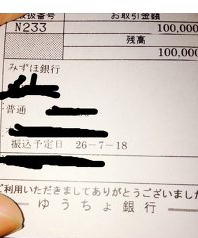 お取引金額
N233 100,000
残高
100,000
みずほ銀行
普通
振込予定日 26-7-18
ご利用いただきましてありがとうございました
ゆうちょ銀行